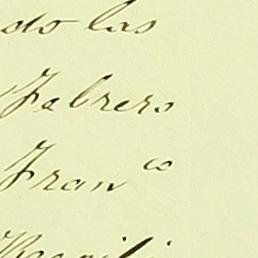 do las
Febrero
Fran co